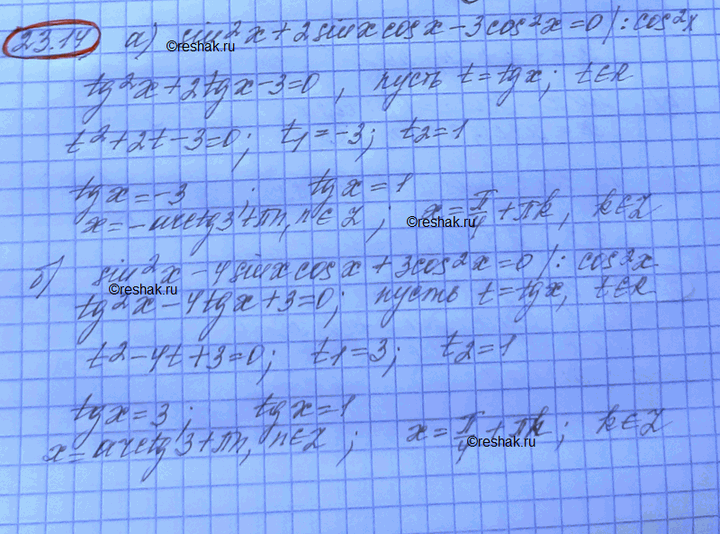 23.14 а) sin²x + 2sinx cosx - 3cos²x = 0 /: cos²x
©reshak.ru
tg²x + 2tgx - 3 = 0 , пусть t = tgx; t∈R
t² + 2t - 3 = 0; t₁ = -3; t₂ = 1
tgx = -3 ; tgx = 1
x = -arctg3 + πn, n∈Z ; x = π/4 + πk, k∈Z
©reshak.ru
б) sin²x - 4sinx cosx + 3cos²x = 0 /: cos²x
©reshak.ru
tg²x - 4tgx + 3 = 0; пусть t = tgx, t∈R
t² - 4t + 3 = 0; t₁ = 3; t₂ = 1
tgx = 3 ; tgx = 1
x = arctg3 + πn, n∈Z ; x = π/4 + πk; k∈Z
©reshak.ru